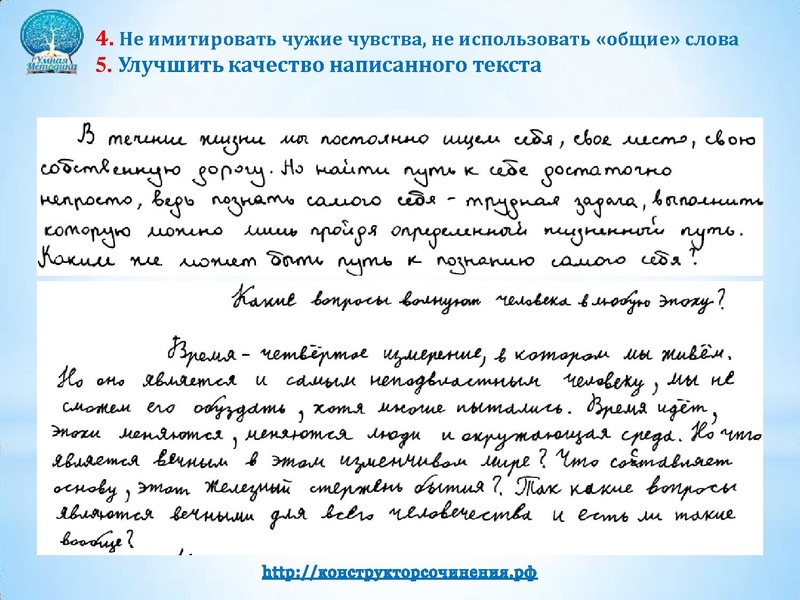 Умная
Методика
4. Не имитировать чужие чувства, не использовать «общие» слова
5. Улучшить качество написанного текста
В течение жизни мы постоянно ищем себя, свое место, свою
собственную дорогу. Но найти путь к себе достаточно
непросто, ведь познать самого себя - трудная задача, выполнить
которую можно лишь пройдя определенный жизненный путь.
Каким же может быть путь к познанию самого себя?
Какие вопросы волнуют человека в любую эпоху?
Время - четвёртое измерение, в котором мы живём.
Но оно является и самым неподвластным человеку, мы не
сможем его обуздать, хотя многие пытались. Время идёт,
эпохи меняются, меняются люди и окружающая среда. Но что
является вечным в этом изменчивом мире? Что составляет
основу, этот железный стержень бытия? Так какие вопросы
являются вечными для всего человечества и есть ли такие
вообще?
http://конструкторсочинения.рф